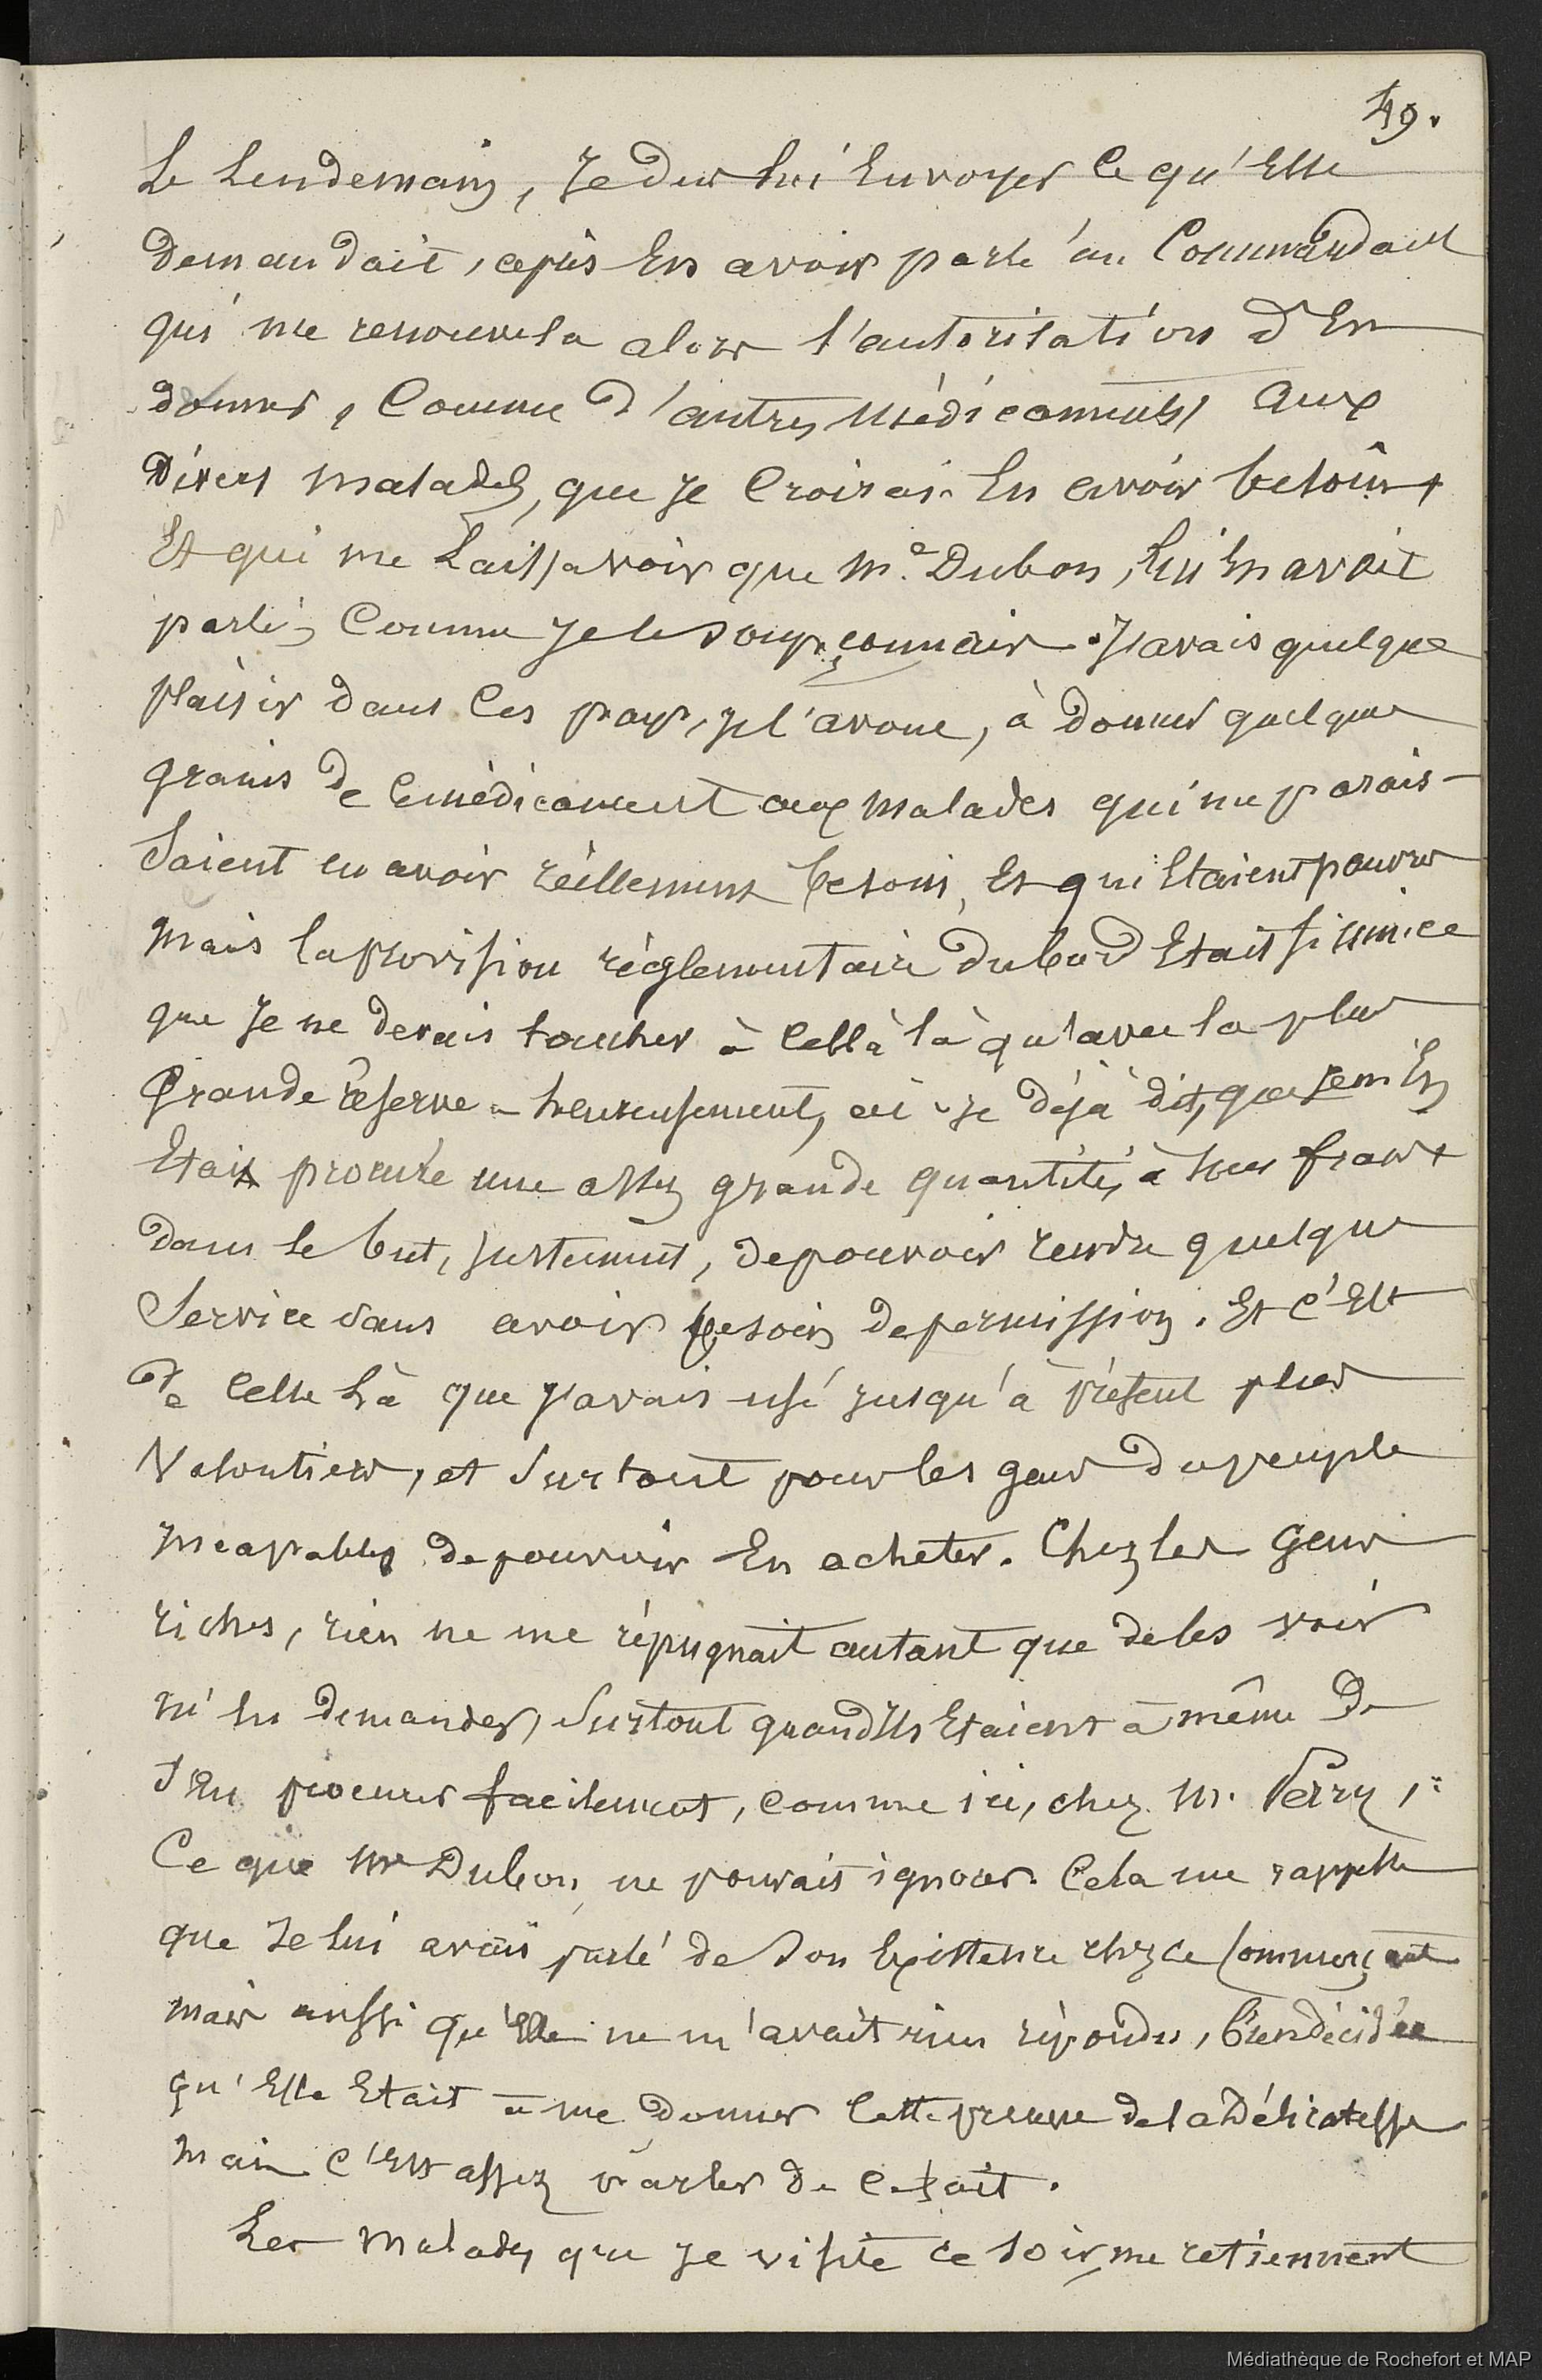 49.
Le Lendemain, Je dus lui Envoyer Ce qu'Elle
Demandait, après En avoir parlé au Commandant
qui me renouvela alors l'autorisation d'En
donner, Comme d'autres médicaments, aux
Divers malades, que Je Croirais En avoir besoin
Et qui me Laissa voir que Me Dubon, lui En avait
parlé, Comme Je le soupçonnais. J'avais quelque
plaisir dans Ces pays, Je l'avoue, à donner quelques
grains de Ce médicament aux malades qui me parais-
Saient en avoir réellement besoin, Et qui Etaient pauvres
mais la provision réglementaire du bord Etait si mince
que Je ne devais toucher à Celle là qu'avec la plus
Grande réserve - heureusement, ai-Je déjà dit, que Je m'En
Etais procuré une assez grande quantité, à mes frais
dans le but, justement, de pouvoir rendre quelque
Service sans avoir besoin de permission. Et C'Est
de Celle là que J'avais usé jusqu'à présent plus
Volontiers, et Surtout pour les gens du peuple
incapables de pouvoir En acheter. Chez les Gens
riches, rien ne me répugnait autant que de les voir
m'En demander, Surtout quand Ils Etaient à même de
s'En procurer facilement, comme ici, chez Mr. Perry,
Ce que Me Dubon, ne pouvait ignorer. Cela me rappelle
que Je lui avais parlé de son Existence chez ce Commerçant
mais aussi qu'Elle ne m'avait rien répondu, bien décidée
qu'Elle Etait à me donner Cette preuve de la Délicatesse
mais C'Est assez parler de Ce fait.
Les malades que Je visite ce soir, me retiennent
Médiathèque de Rochefort et MAP